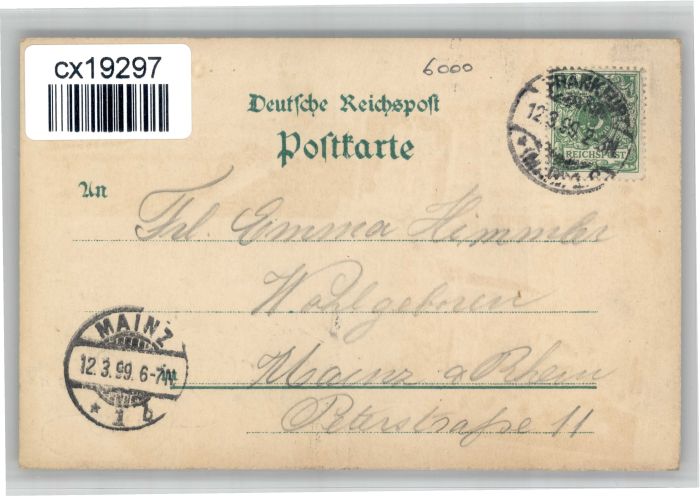 cx19297
6000
Deutsche Reichspost
Postkarte
An
Frl. Emma Himmler
Wohlgeboren
Mainz a Rhein
Peterstraße 11
FRANKFURT
12.3.99. 6-7N
REICHSPOST
MAINZ
12.3.99. 6-7N
* 1 b